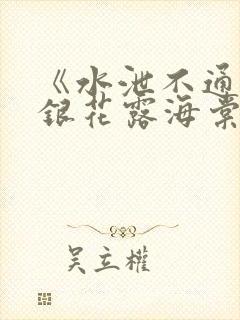 《水泄不通
銀花露海棠
吴立權